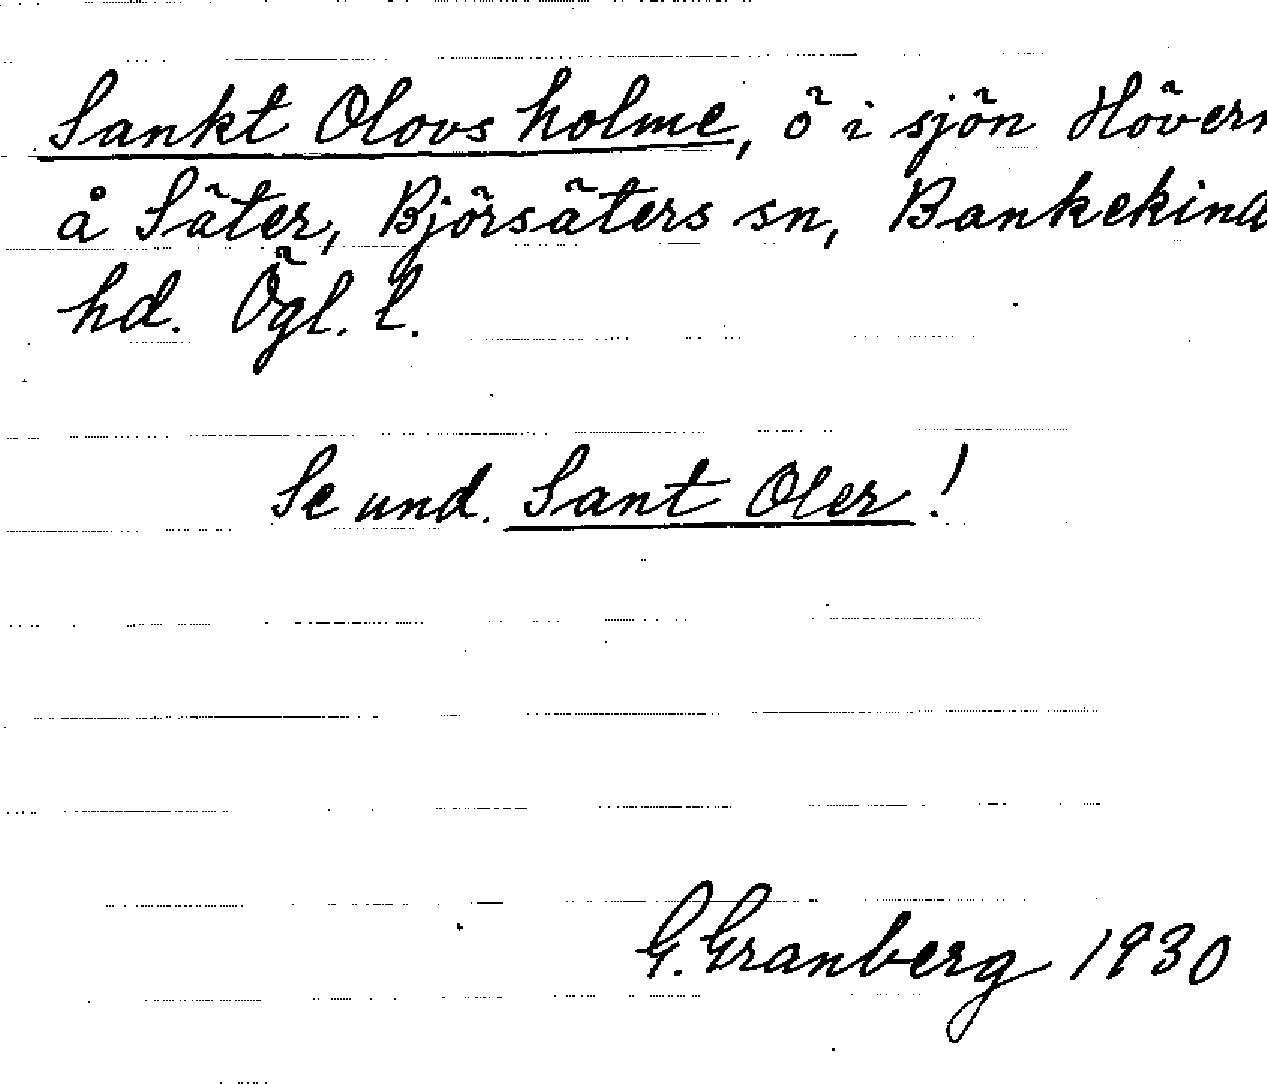 Sankt Olovs holme, ö i sjön Hövern
å Säter, Björsäters sn, Bankekind
hd. Ögl. l.
Se und. Sant Oler!
G. Granberg 1930